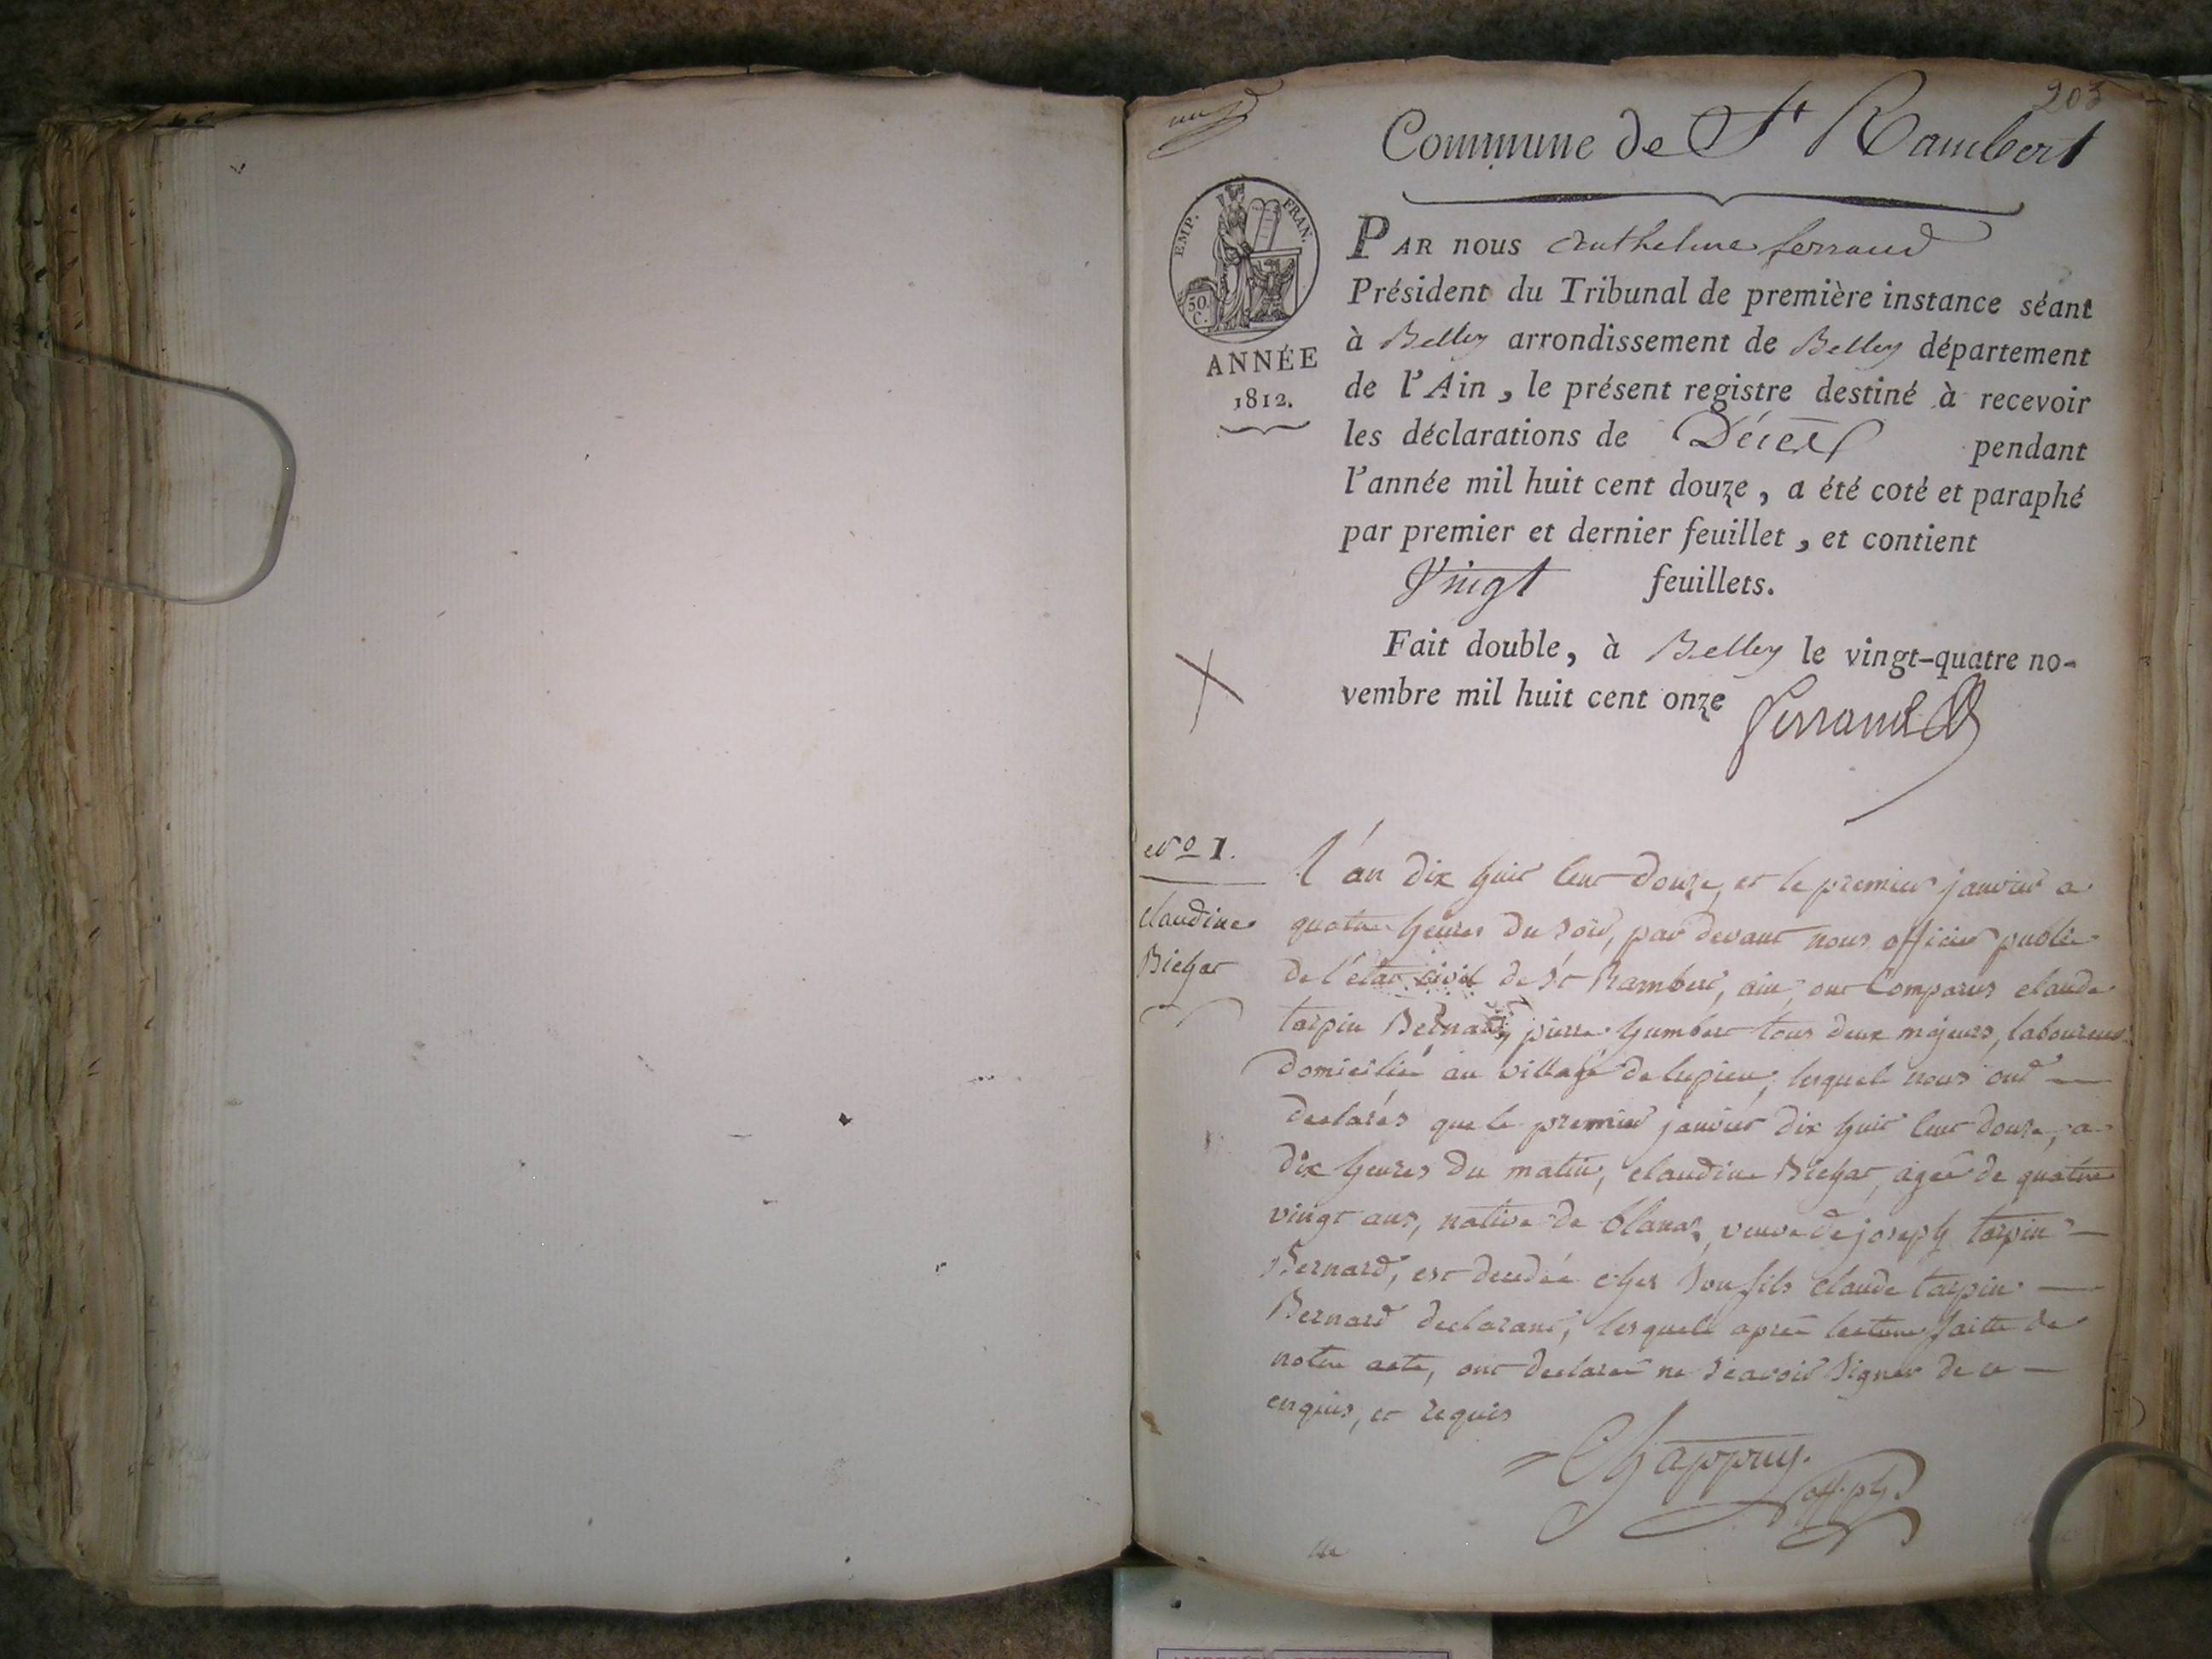 203
Commune de St Rambert
EMP. FRAN.
50 C.
ANNÉE
1812.
PAR nous Anthelme ferrand
Président du Tribunal de première instance séant
à Belley arrondissement de Belley département
de l'Ain, le présent registre destiné à recevoir
les déclarations de Décès pendant
l'année mil huit cent douze, a été coté et paraphé
par premier et dernier feuillet, et contient
Vingt feuillets.
Fait double, à Belley le vingt-quatre no-
vembre mil huit cent onze Ferrand
No 1.
claudine
Bichat
L'an dix huit cent douze, et le premier janvier a
quatre heures du soir, par devant nous officier public
de l'état civil de St Rambert, ain, ont Comparus claude
tarpin Bernard, pierre humbert tous deux majeurs, laboureurs
domiciliés au village de lupieu, lesquels nous ont
declarés que le premier janvier dix huit cent douze, a
dix heures du matin, claudine Bichat, agée de quatre
vingt ans, native de blanaz, veuve de joseph tarpin
Bernard, est decedée chez son fils claude tarpin
Bernard declarant, lesquels après lecture faitte de
notre acte, ont declarés ne scavoir signer de ce
enquis, et requis
Chappuy.
off. pb.